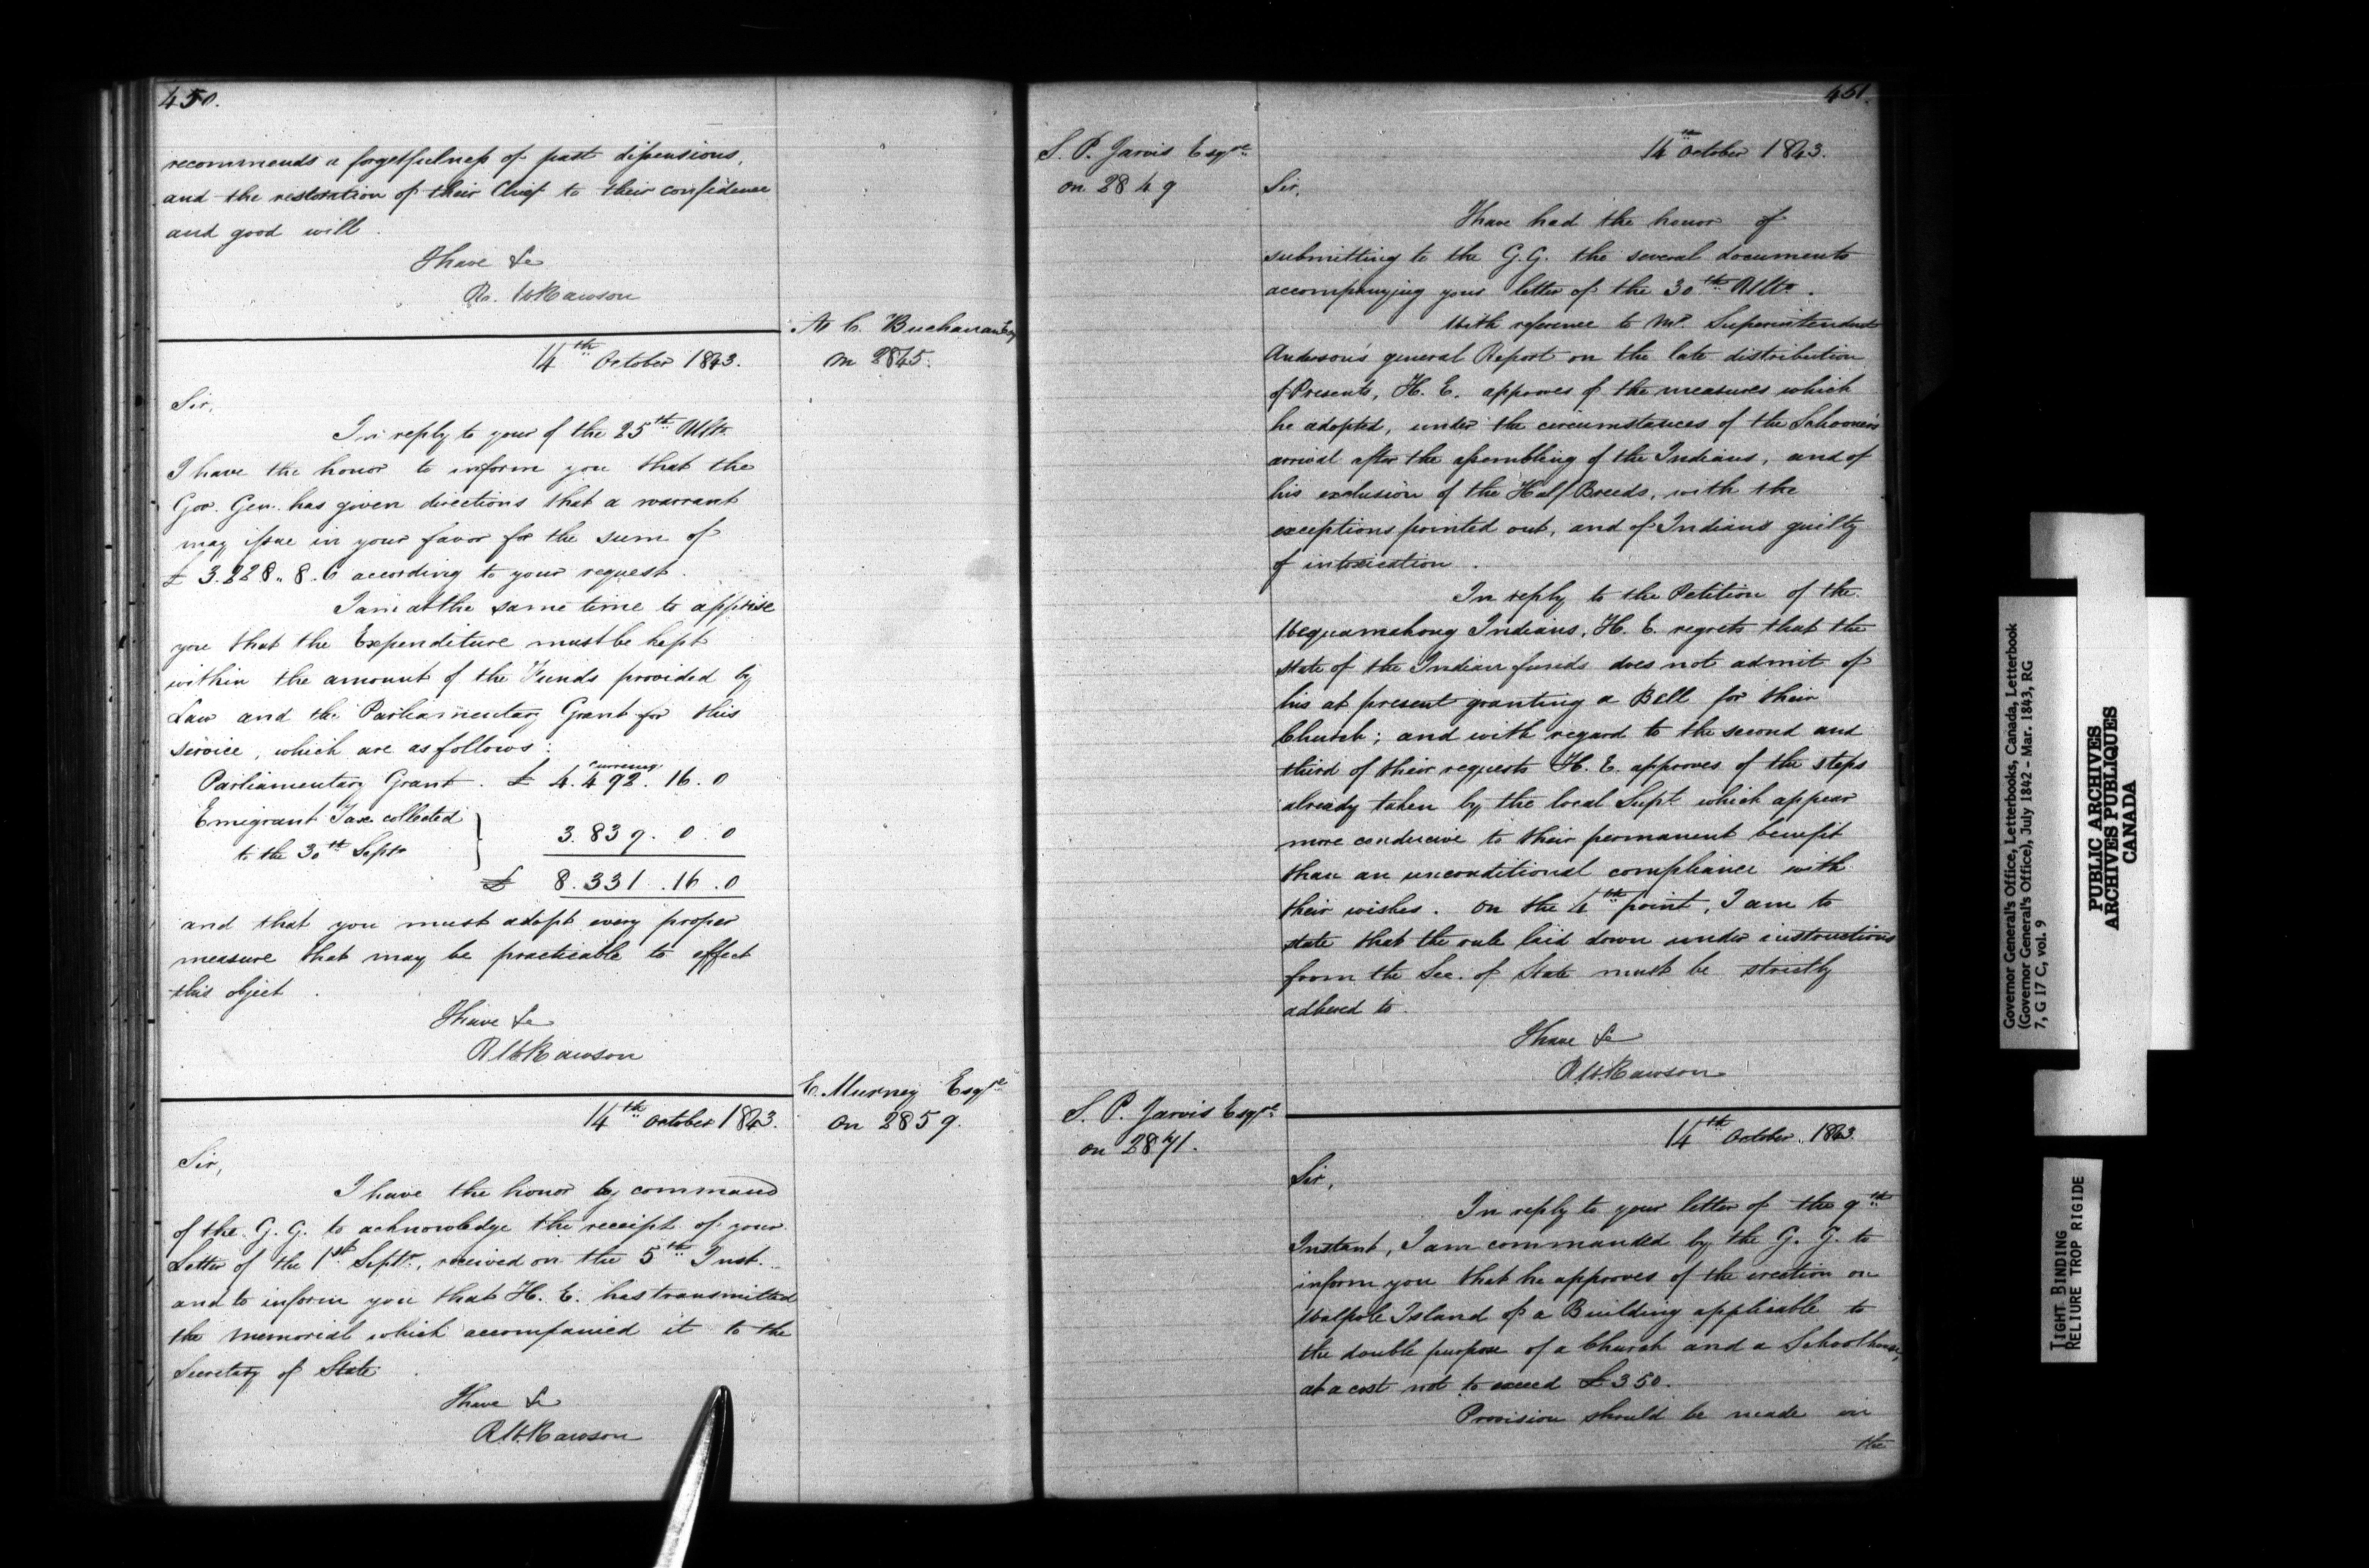 450.
recommends a forgetfulness of past dissensions,
and the restoration of their Chief to their confidence
and good will.
I have &c
R. W Rawson
A C. Buchanan Esq
on 2845.
14th October 1843.
Sir,
In reply to your of the 25th Ulto.
I have the honor to inform you that the
Gov. Gen. has given directions that a warrant
may issue in your favor for the sum of
£ 3.228.. 8. 6 according to your request.
I am at the same time to apprise
you that the Expenditure must be kept
within the amount of the Funds provided by
Law and the Parliamentary Grant for this
service, which are as follows:
Currency
Parliamentary Grant. £ 4.492. 16. 0
Emigrant Tax collected
to the 30th Septr 3.839. 0. 0
£ 8.331. 16. 0
and that you must adopt every proper
measure that may be practicable to effect
this object.
I have &c
R W Rawson
E. Murney Esqre
on 2859.
14th October 1843.
Sir,
I have the honor by command
of the G. G. to acknowledge the receipt of your
Letter of the 1st Septr, received on the 5th Inst.
and to inform you that H. E. has transmitted
the Memorial which accompanied it to the
Secretary of State.
I have &c
R W. Rawson
451.
S. P. Jarvis Esqre
on 2849
14th October 1843.
Sir,
I have had the honor of
submitting to the G. G. the several documents
accompanying your letter of the 30th Ulto.
With reference to Mr. Superintendent
Anderson's general Report on the late distribution
of Presents, H. E. approves of the measures which
he adopted, under the circumstances of the Schooner's
arrival after the assembling of the Indians, and of
his exclusion of the Half Breeds, with the
exceptions pointed out, and of Indians guilty
of intoxication.
In reply to the Petition of the
Wequamekong Indians, H. E. regrets that the
state of the Indian funds does not admit of
his at present granting a Bell for their
Church; and with regard to the second and
third of their requests H. E. approves of the steps
already taken by the local Supt which appear
more conducive to their permanent benefit
than an unconditional compliance with
their wishes. On the 4th point, I am to
state that the rule laid down under instructions
from the Sec. of State must be strictly
adhered to.
I have &c
R W. Rawson
S. P. Jarvis Esqre
on 2871.
14th October. 1843.
Sir,
In reply to your letter of the 9th
Instant, I am commanded by the G. G. to
inform you that he approves of the erection on
Walpole Island of a Building applicable to
the double purpose of a Church and a Schoolhouse,
at a cost not to exceed £350.
Provision should be made in
the
Governor General's Office, Letterbooks, Canada, Letterbook
(Governor General's Office), July 1842 - Mar. 1843, RG
7, G 17 C, vol. 9
PUBLIC ARCHIVES
ARCHIVES PUBLIQUES
CANADA
TIGHT BINDING
RELIURE TROP RIGIDE